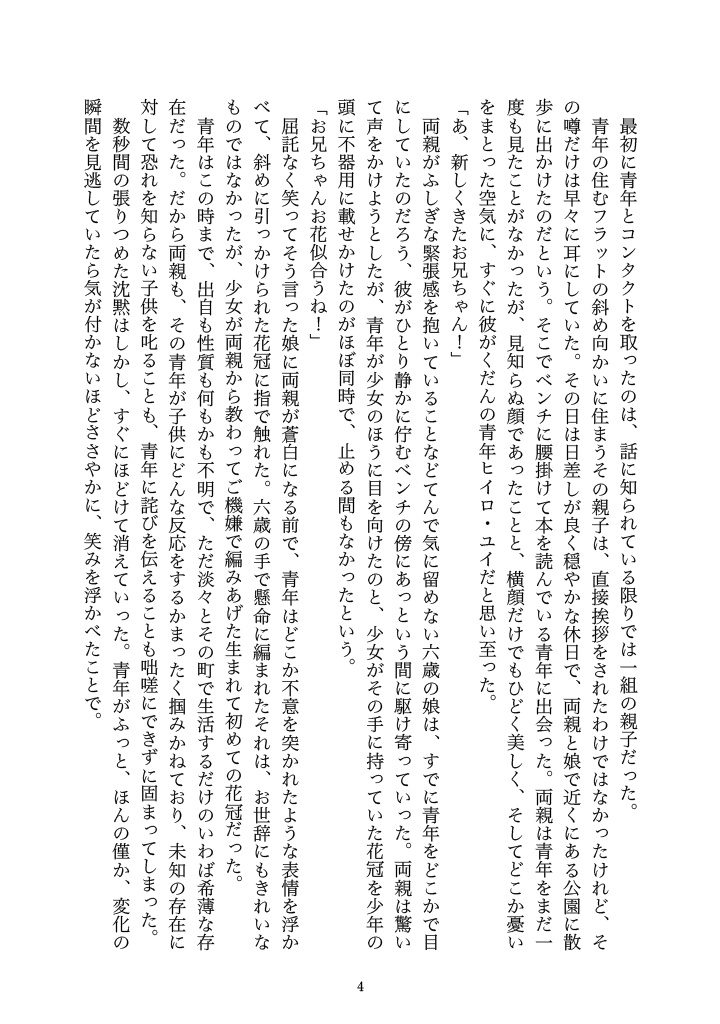 最初に青年とコンタクトを取ったのは、話に知られている限りでは一組の親子だった。
青年の住むフラットの斜め向かいに住まうその親子は、直接挨拶をされたわけではなかったけれど、そ
の噂だけは早々に耳にしていた。その日は日差しが良く穏やかな休日で、両親と娘で近くにある公園に散
歩に出かけたのだという。そこでベンチに腰掛けて本を読んでいる青年に出会った。両親は青年をまだ一
度も見たことがなかったが、見知らぬ顔であったことと、横顔だけでもひどく美しく、そしてどこか憂い
をまとった空気に、すぐに彼がくだんの青年ヒイロ・ユイだと思い至った。
「あ、新しくきたお兄ちゃん！」
両親がふしぎな緊張感を抱いていることなどてんで気に留めない六歳の娘は、すでに青年をどこかで目
にしていたのだろう、彼がひとり静かに佇むベンチの傍にあっという間に駆け寄っていった。両親は驚い
て声をかけようとしたが、青年が少女のほうに目を向けたのと、少女がその手に持っていた花冠を少年の
頭に不器用に載せかけたのがほぼ同時で、止める間もなかったという。
「お兄ちゃんお花似合うね！」
屈託なく笑ってそう言った娘に両親が蒼白になる前で、青年はどこか不意を突かれたような表情を浮か
べて、斜めに引っかけられた花冠に指で触れた。六歳の手で懸命に編まれたそれは、お世辞にもきれいな
ものではなかったが、少女が両親から教わってご機嫌で編みあげた生まれて初めての花冠だった。
青年はこの時まで、出自も性質も何もかも不明で、ただ淡々とその町で生活するだけのいわば希薄な存
在だった。だから両親も、その青年が子供にどんな反応をするかまったく掴みかねており、未知の存在に
対して恐れを知らない子供を叱ることも、青年に詫びを伝えることも咄嗟にできずに固まってしまった。
数秒間の張りつめた沈黙はしかし、すぐにほどけて消えていった。青年がふっと、ほんの僅か、変化の
瞬間を見逃していたら気が付かないほどささやかに、笑みを浮かべたことで。
4